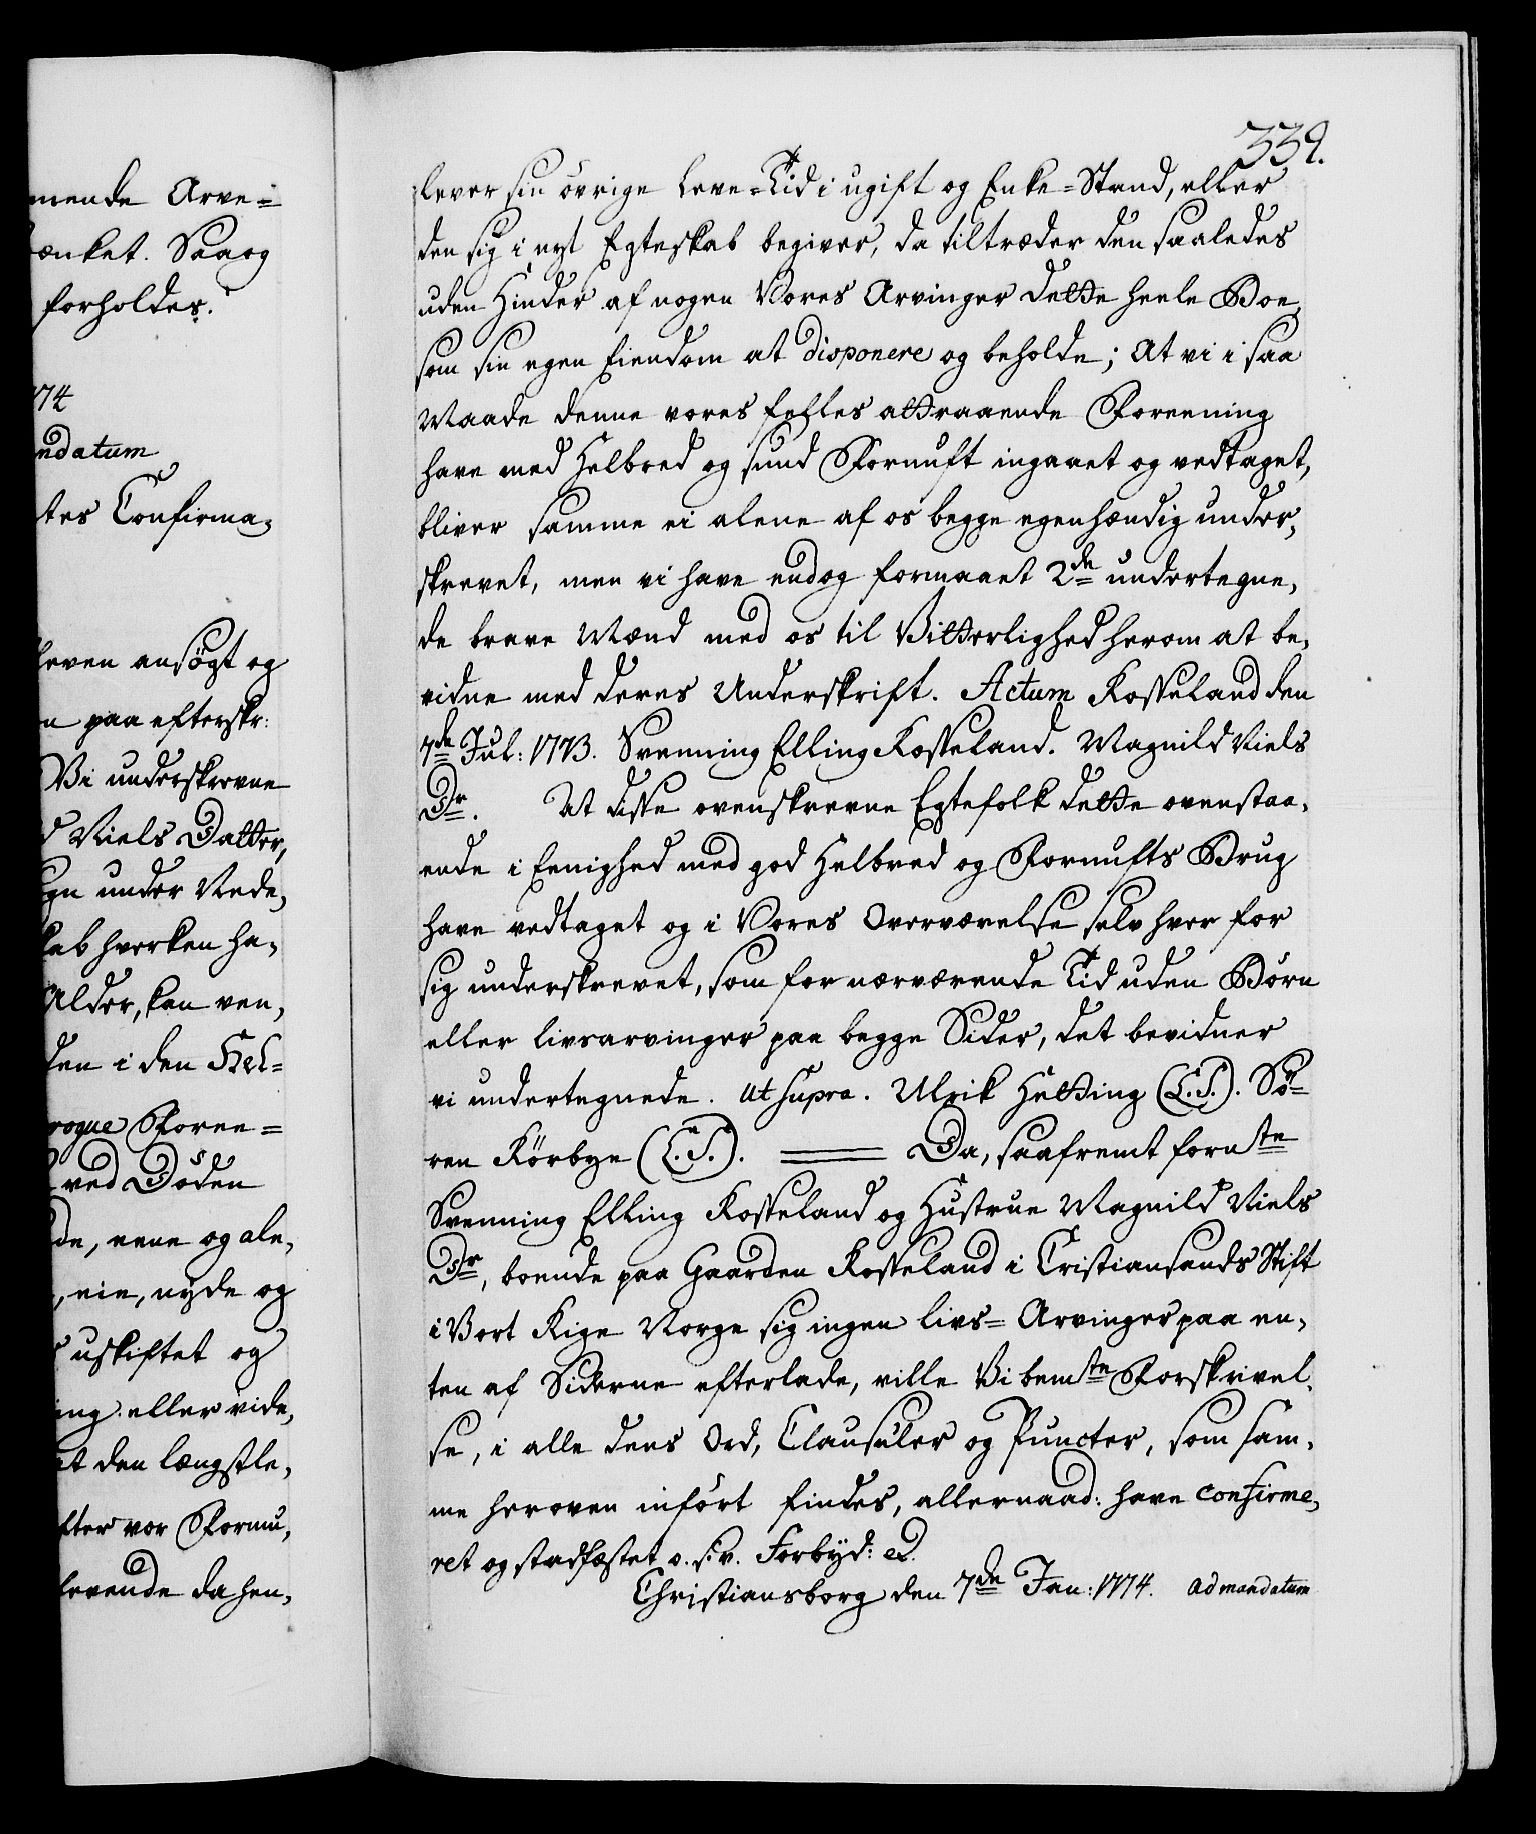 mende Arve-
ænket. Saa og
forholdes.
174
ndatum
tes Confirma-
leven ansøgt og
n paa efterskr:
Vi underskrevne
d Niels Datter,
gn under Nede-
kab hverken ha-
Alder, kan ven-
den i den Hel-
rogne Foree-
ved Døden
de, eene og ale-
, eie, nyde og
s uskiftet og
ing eller vide-
at den længstle-
fter vor Formu-
levende da hen-
339.
lever sin övrige Leve-Tid i ugift og Enke-Stand, eller
den sig i nyt Egteskab begiver, da tiltræder den saaledes
uden Hinder af nogen Vores Arvinger dette heele Boe
som sin egen Eiendom at disponere og beholde; At vi i saa
Maade denne vores felles attraaende Foreening
have med Helbred og sund Fornuft ingaaet og vedtaget,
bliver samme ei alene af os begge egenhændig under-
skrevet, men vi have endog formaaet 2de undertegne-
de brave Mænd med os til Vitterlighed herom at be-
vidne med deres Underskrift. Actum Kosseland den
7de Jul: 1773. Svenning Elling Kosseland. Magnild Niels
Dr. At disse ovenskrevne Egtefolk dette ovenstaa-
ende i Eenighed med god Helbred og Fornufts Brug
have vedtaget og i Vores Overværelse selv hver for
sig underskrevet, som for nærværende Tid uden Børn
eller livsarvinger paa begge Sider, det bevidner
vi undertegnede. Ut supra. Ulrik Hetting (L.S.). Sö-
ren Körbye (L.S.). Da, saafremt forn:te
Svenning Elling Kosseland og Hustrue Magnild Niels
Dr, boende paa Gaarden Kosseland i Cristiansands Stift
i Vort Rige Norge sig ingen livs-Arvinger paa en-
ten af Siderne efterlade, ville Vi bemte Forskrivel-
se, i alle dens Ord, Clausuler og Puncter, som sam-
me heroven infört findes, allernaad: have confirme-
ret og stadfæstet o. s. v. Forbyd: &.
Christiansborg den 7de Jan: 1774. ad mandatum